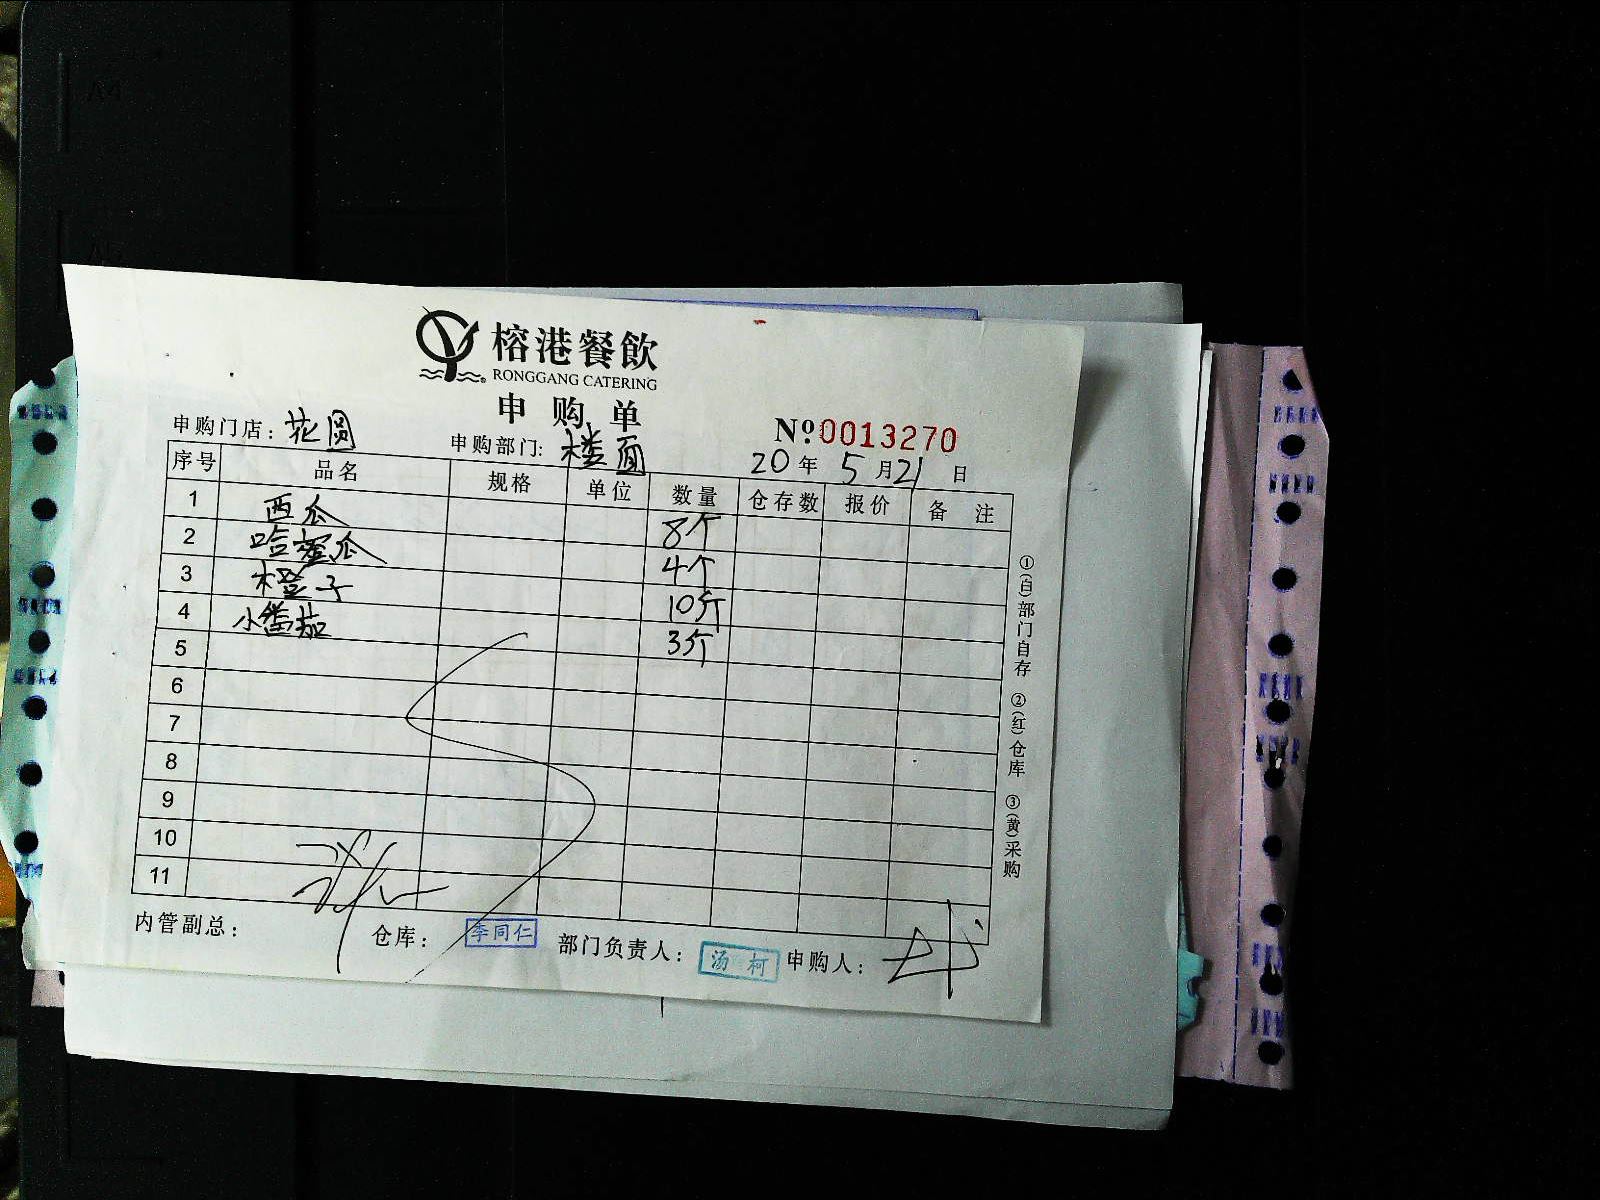 榕港餐飲
RONGGANG CATERING
申购单
申购门店：花圆 申购部门：楼面 №0013270
20年5月21日
序号 品名 规格 单位 数量 仓存数 报价 备注
1 西瓜 8个
2 哈蜜瓜 4个
3 橙子 10斤
4 小番茄 3斤
5
6
7
8
9
10
11
①(白)部门自存 ②(红)仓库 ③(黄)采购
内管副总： 仓库：李同仁 部门负责人：汤柯 申购人：